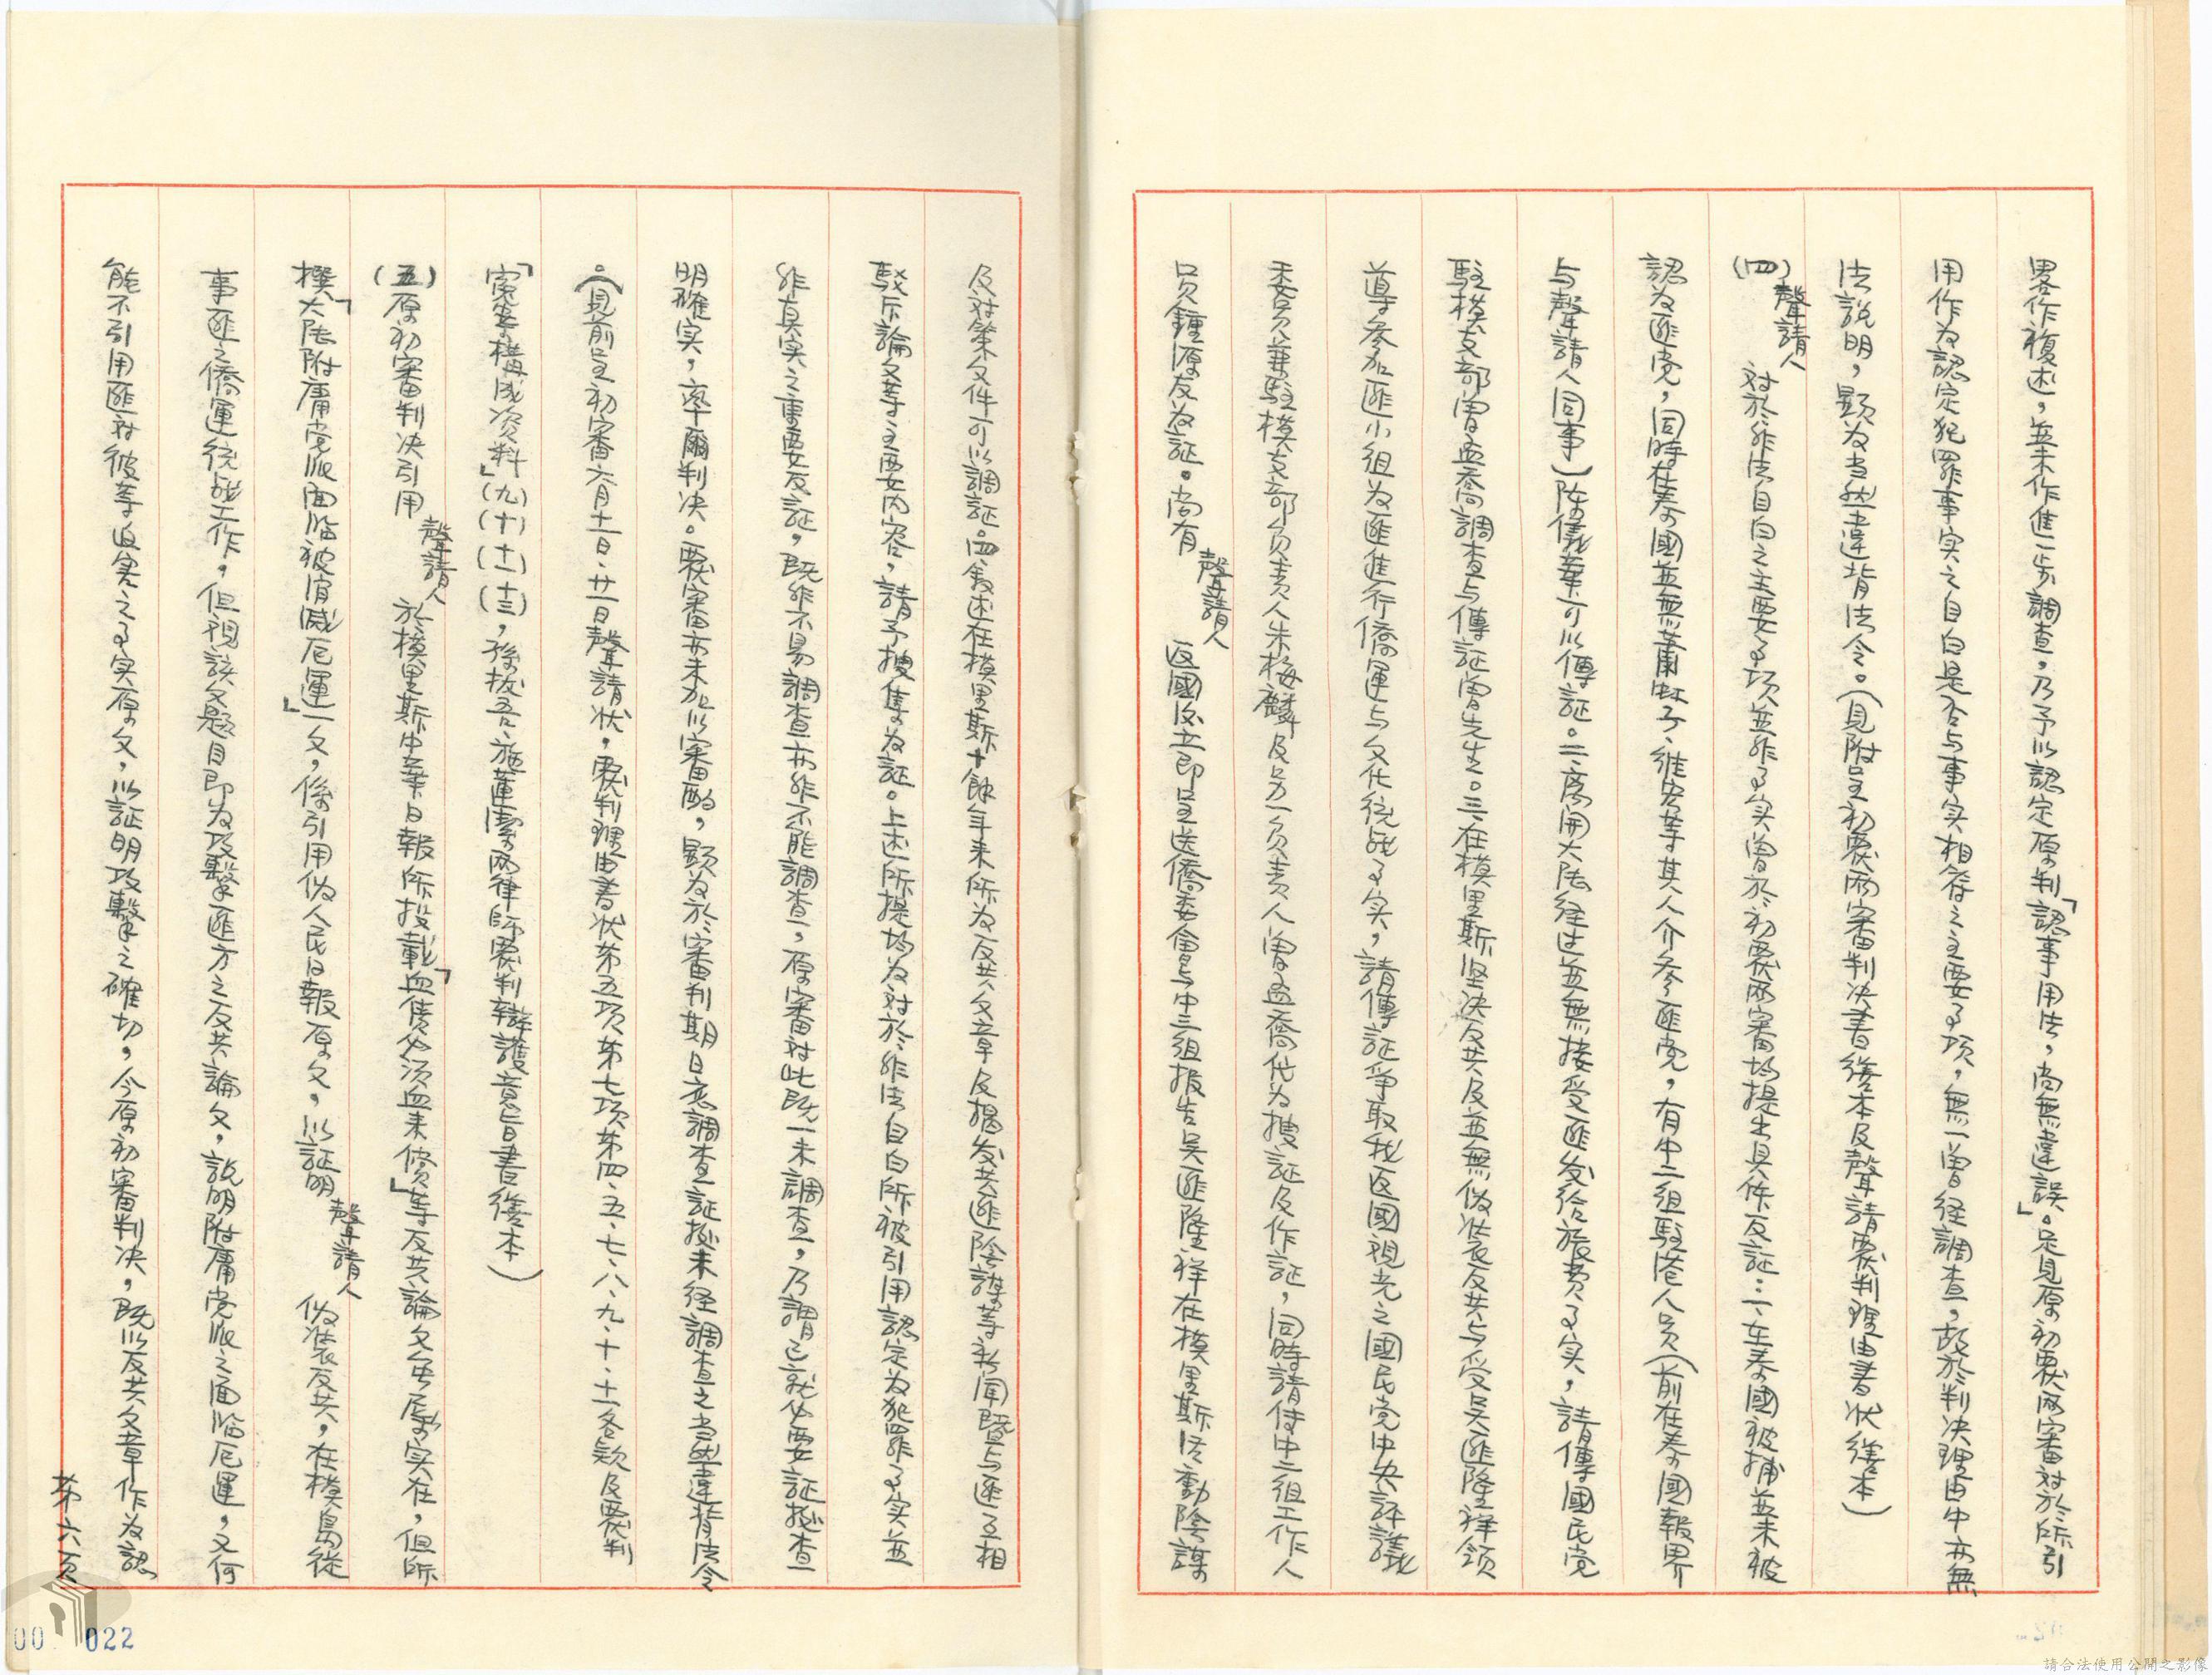 畧作複述，並未作進一步調查，乃予以認定原判「認事用法，尚無違誤」。足見原初覆兩審対於所引
用作為認定犯罪事实之自白是否与事实相符之主要事項，無一曾经調查，故於判决理由中亦無
法說明，顯為当然違背法令。（見附呈初覆兩審判决書繕本及聲請覆判理由書狀繕本）
(四)聲請人対於非法自白之主要事項並非事实曾於初覆兩審均提出具体反証：一、在泰國被捕並未被
認为匪党，同時在泰國並無蕭虹予、維宏等其人介參匪党，有中二组駐港人員（前在泰國報界
与聲請人同事）陈儀華可以傳証。二、离開大陆经过並無接受匪发给旅費事实，請傳國民党
駐模支部曾孟喬調查与傳証曾先生。三、在模里斯坚决反共及並無伪装反共与受吳匪隆祥领
導参加匪小组为匪進行僑運与文化统战事实，請傳証爭取我返國观光之國民党中央評議
委員兼駐模支部负责人朱梅麟及另一负责人曾孟喬代为搜証及作証，同時請傳中二组工作人
员鍾源友为証。尚有聲請人返國後立即呈送僑委會与中三组报告吳匪隆祥在模里斯活動陰謀
及対策文件可以調証。四、敘述在模里斯十餘年来所为反共文章及揭发共匪陰謀等新聞暨与匪互相
駁斥論文等主要内容，請予搜集为証。上述所提均为対於非法自白所被引用認定为犯罪事实並
非真实之重要反証，既非不易調查亦非不能調查，原審対此既一未調查，乃謂已就必要証據查
明確实，率爾判决。覆審亦未加以審酌，顯为於審判期日应調查証據未经調查之当然違背法令
。（見前呈初審六月十一日、廿一日聲請状，覆判理由書状第五項第七項第四、五、七、八、九、十、十一各款及覆判
「寃案構成资料」(九)(十)(十一)(十三)，孫拔吾、施蓮潔兩律師覆判辯護意旨書繕本）
(五)原初審判决引用聲請人於模里斯中華日報所投載「血債必须血来償」等反共論文与屬实在，但所
撰「大陆附庸党派面临被消滅厄運」一文，係引用伪人民日報原文，以証明聲請人伪装反共，在模島從
事匪之僑運统战工作。但視該文題目即为攻擊匪方之反共論文，說明附庸党派之面临厄運，又何
能不引用匪対彼等迫害之事实原文，以証明攻擊之確切，今原初審判决，既以反共文章作为認
第六頁
00 022
請合法使用公開之影像